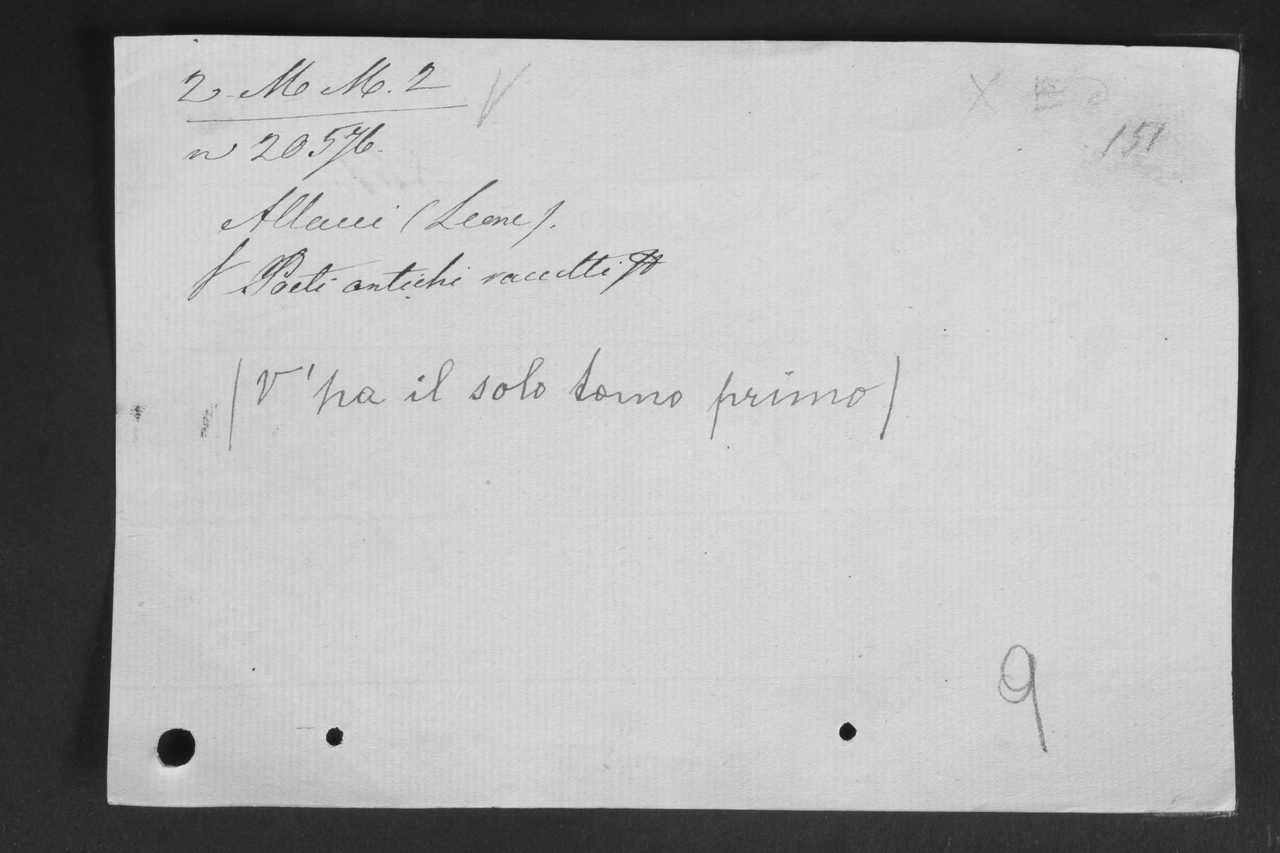 2. M M. 2 V
151
n 20576.
Allacci (Leone).
Poeti antichi raccolti
(V'ha il solo tomo primo)
9